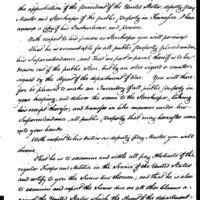 the approbation of the President of the United States, deputy pay
Master and Storekeeper of the public property in Tennessee. I have
annexed a copy of his Instructions and powers.
With respect to his power as Storekeeper you will perceive
that he is accountable for all public property placed under
his Superintendence, and that no part or parcel thereof is to be
drawn out of the public Store but by an order or agent's consent
signed by the Agent of the department of War. You will there-
fore be pleased to make an Inventory of all public property in
your keeping, and deliver the same to the Storekeeper, taking
his receipt therefor; and transfer in like manner under his
Superintendence, all public property that may hereafter come
into your hands.
With respect to his duties as deputy pay Master you will
observe.
That he is to examine and settle all pay Abstracts of the
regular Troops and Militia in the Service of the United States
and certify to you the Sums due thereon, and that he is also
to examine and report the Sums due on all other claims a-
gainst the United States which the Agent of the department